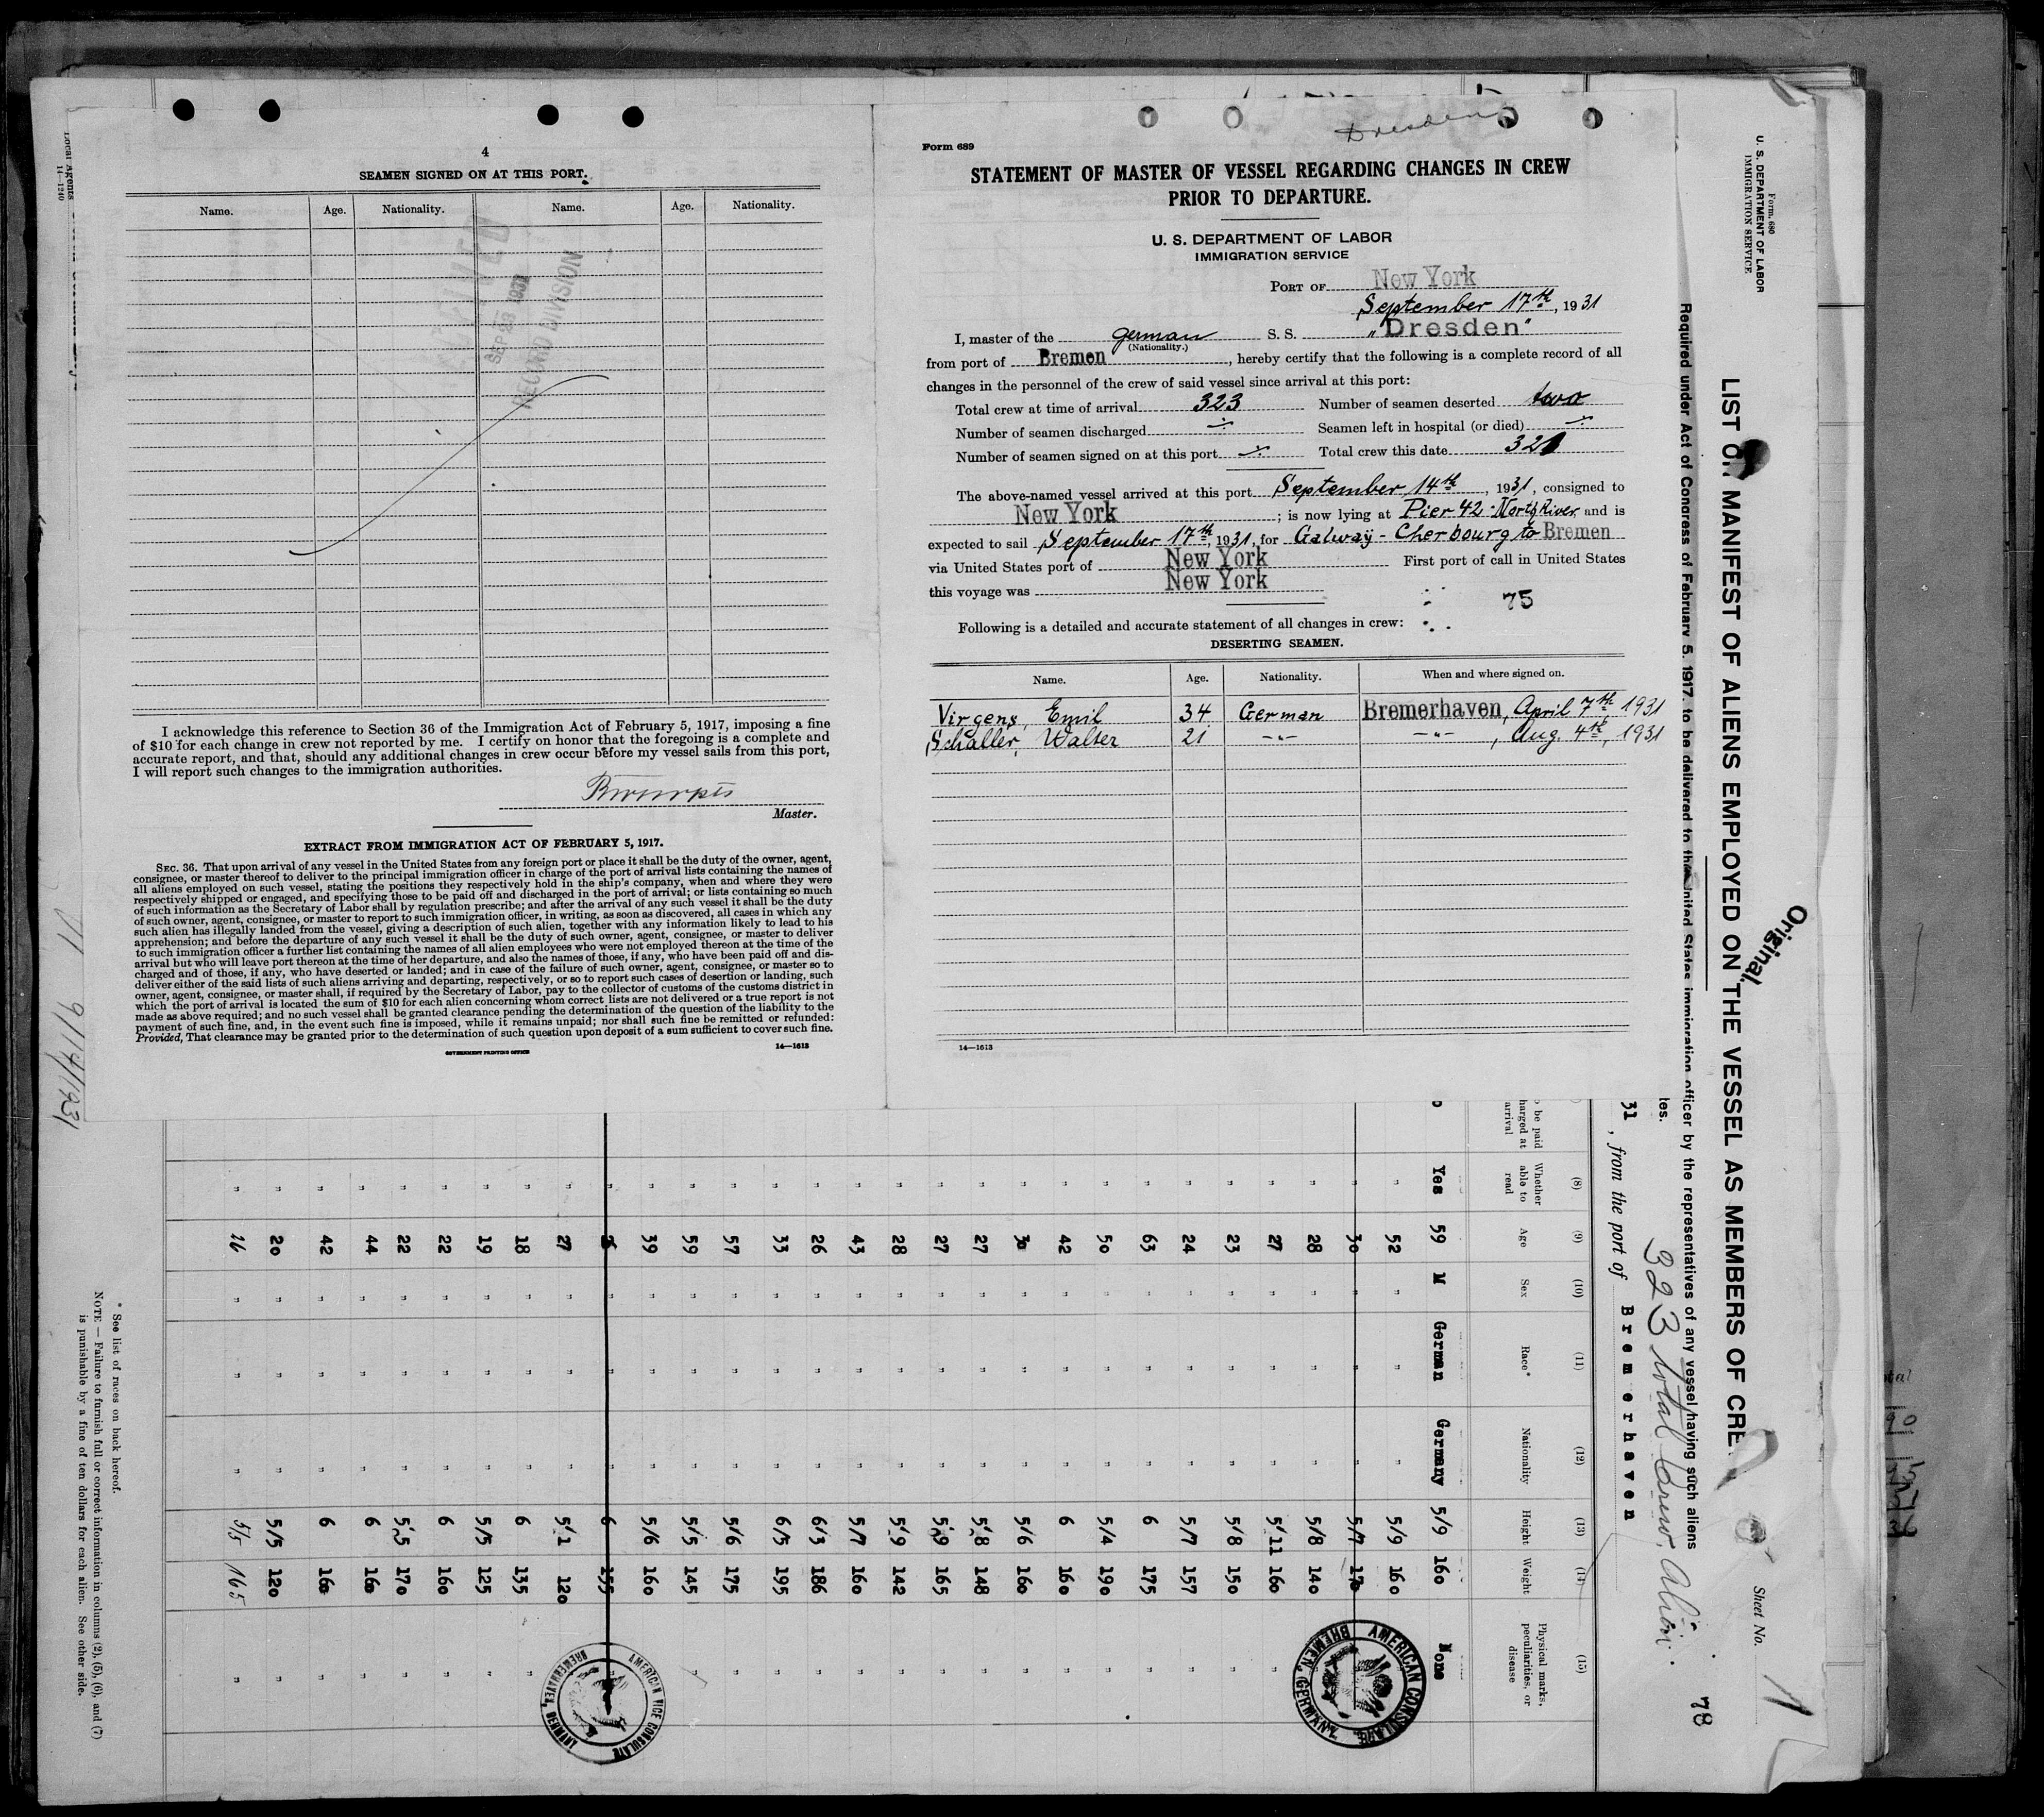 Local Agents
14—1240
4
SEAMEN SIGNED ON AT THIS PORT.
Name. Age. Nationality. Name. Age. Nationality.
SEP 23 1931
RECORD DIVISION
I acknowledge this reference to Section 36 of the Immigration Act of February 5, 1917, imposing a fine
of $10 for each change in crew not reported by me. I certify on honor that the foregoing is a complete and
accurate report, and that, should any additional changes in crew occur before my vessel sails from this port,
I will report such changes to the immigration authorities.
Master.
EXTRACT FROM IMMIGRATION ACT OF FEBRUARY 5, 1917.
SEC. 36. That upon arrival of any vessel in the United States from any foreign port or place it shall be the duty of the owner, agent,
consignee, or master thereof to deliver to the principal immigration officer in charge of the port of arrival lists containing the names of
all aliens employed on such vessel, stating the positions they respectively hold in the ship's company, when and where they were
respectively shipped or engaged, and specifying those to be paid off and discharged in the port of arrival; or lists containing so much
of such information as the Secretary of Labor shall by regulation prescribe; and after the arrival of any such vessel it shall be the duty
of such owner, agent, consignee, or master to report to such immigration officer, in writing, as soon as discovered, all cases in which any
such alien has illegally landed from the vessel, giving a description of such alien, together with any information likely to lead to his
apprehension; and before the departure of any such vessel it shall be the duty of such owner, agent, consignee, or master to deliver
to such immigration officer a further list containing the names of all alien employees who were not employed thereon at the time of the
arrival but who will leave port thereon at the time of her departure, and also the names of those, if any, who have been paid off and dis-
charged and of those, if any, who have deserted or landed; and in case of the failure of such owner, agent, consignee, or master so to
deliver either of the said lists of such aliens arriving and departing, respectively, or so to report such cases of desertion or landing, such
owner, agent, consignee, or master shall, if required by the Secretary of Labor, pay to the collector of customs of the customs district in
which the port of arrival is located the sum of $10 for each alien concerning whom correct lists are not delivered or a true report is not
made as above required; and no such vessel shall be granted clearance pending the determination of the question of the liability to the
payment of such fine, and, in the event such fine is imposed, while it remains unpaid; nor shall such fine be remitted or refunded:
Provided, That clearance may be granted prior to the determination of such question upon deposit of a sum sufficient to cover such fine.
GOVERNMENT PRINTING OFFICE
14—1613
Dresden
Form 689
STATEMENT OF MASTER OF VESSEL REGARDING CHANGES IN CREW
PRIOR TO DEPARTURE.
U. S. DEPARTMENT OF LABOR
IMMIGRATION SERVICE
PORT OF New York
September 17th, 1931
I, master of the german S. S. "Dresden"
(Nationality.)
from port of Bremen, hereby certify that the following is a complete record of all
changes in the personnel of the crew of said vessel since arrival at this port:
Total crew at time of arrival 323 Number of seamen deserted two
Number of seamen discharged ÷ Seamen left in hospital (or died) ÷
Number of seamen signed on at this port ÷ Total crew this date 321
The above-named vessel arrived at this port September 14th, 1931, consigned to
New York; is now lying at Pier 42 North River, and is
expected to sail September 17th, 1931, for Galway - Cherbourg to Bremen
via United States port of New York First port of call in United States
this voyage was New York
75
Following is a detailed and accurate statement of all changes in crew:
DESERTING SEAMEN.
Name. Age. Nationality. When and where signed on.
Virgens, Emil 34 German Bremerhaven, April 7th, 1931
Schaller, Walter 21 -"- -"-, Aug. 4th, 1931
14—1613
Form 680
U. S. DEPARTMENT OF LABOR
IMMIGRATION SERVICE
LIST OR MANIFEST OF ALIENS EMPLOYED ON THE VESSEL AS MEMBERS OF CRE
Sheet No. 1
Original
Required under Act of Congress of February 5, 1917, to be delivered to the United States immigration officer by the representatives of any vessel having such aliens
323 total Crew, Alien.
78
tes.
31, from the port of Bremerhaven
(8) (9) (10) (11) (12) (13) (14) (15)
be paid
harged at
arrival
Whether
able to
read
Age
Sex
Race*
Nationality
Height
Weight
Physical marks,
peculiarities, or
disease
Yes 59 M German Germany 5/9 160 None
" 52 " " " 5/9 160
" 30 " " " 5/7 170
" 28 " " " 5/8 140
" 27 " " " 5'11 160 "
" 23 " " " 5'8 150 "
" 24 " " " 5/7 157 "
" 63 " " " 6 175 "
" 50 " " " 5/4 190 "
" 42 " " " 6 160 "
" 30 " " " 5/6 160 "
" 27 " " " 5'8 148 "
" 27 " " " 5'9 165 "
" 28 " " " 5'9 142 "
" 43 " " " 5/7 160 "
" 26 " " " 6'3 186 "
" 33 " " " 6/5 195 "
" 57 " " " 5'6 175 "
" 59 " " " 5'5 145 "
" 39 " " " 5/6 160
" " " " 6 155
" 27 " " " 5'1 120
" 18 " " " 6 135 "
" 19 " " " 5/5 125 "
" 22 " " " 6 160 "
" 22 " " " 5'5 170 "
" 44 " " " 6 160 "
" 42 " " " 6 160 "
" 20 " " " 5/5 120 "
" 26 " " " 5/5 165 "
AMERICAN CONSULATE
BREMEN, GERMANY.
AMERICAN VICE CONSULATE
BREMERHAVEN, GERMANY
* See list of races on back hereof.
NOTE — Failure to furnish full or correct information in columns (2), (5), (6), and (7)
is punishable by a fine of ten dollars for each alien. See other side.
VI 9/14/1931